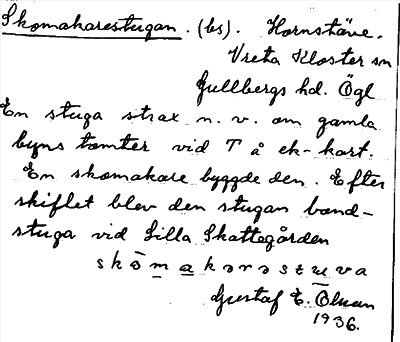 Skomakarestugan. (bs). Hornstäve.
Vreta Kloster sn
Gullbergs hd. Ögl
En stuga strax n. v. om gamla
byns tomter vid T å ek-kart.
En skomakare byggde den. Efter
skiftet blev den stugan band-
stuga vid Lilla Skattegården
skōmakərəstuva
Gustaf E.
1936.